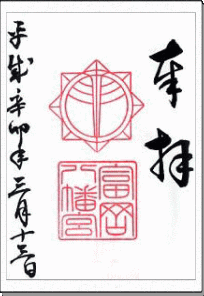 奉拝
富岡八幡宮
平成辛卯年三月十三日